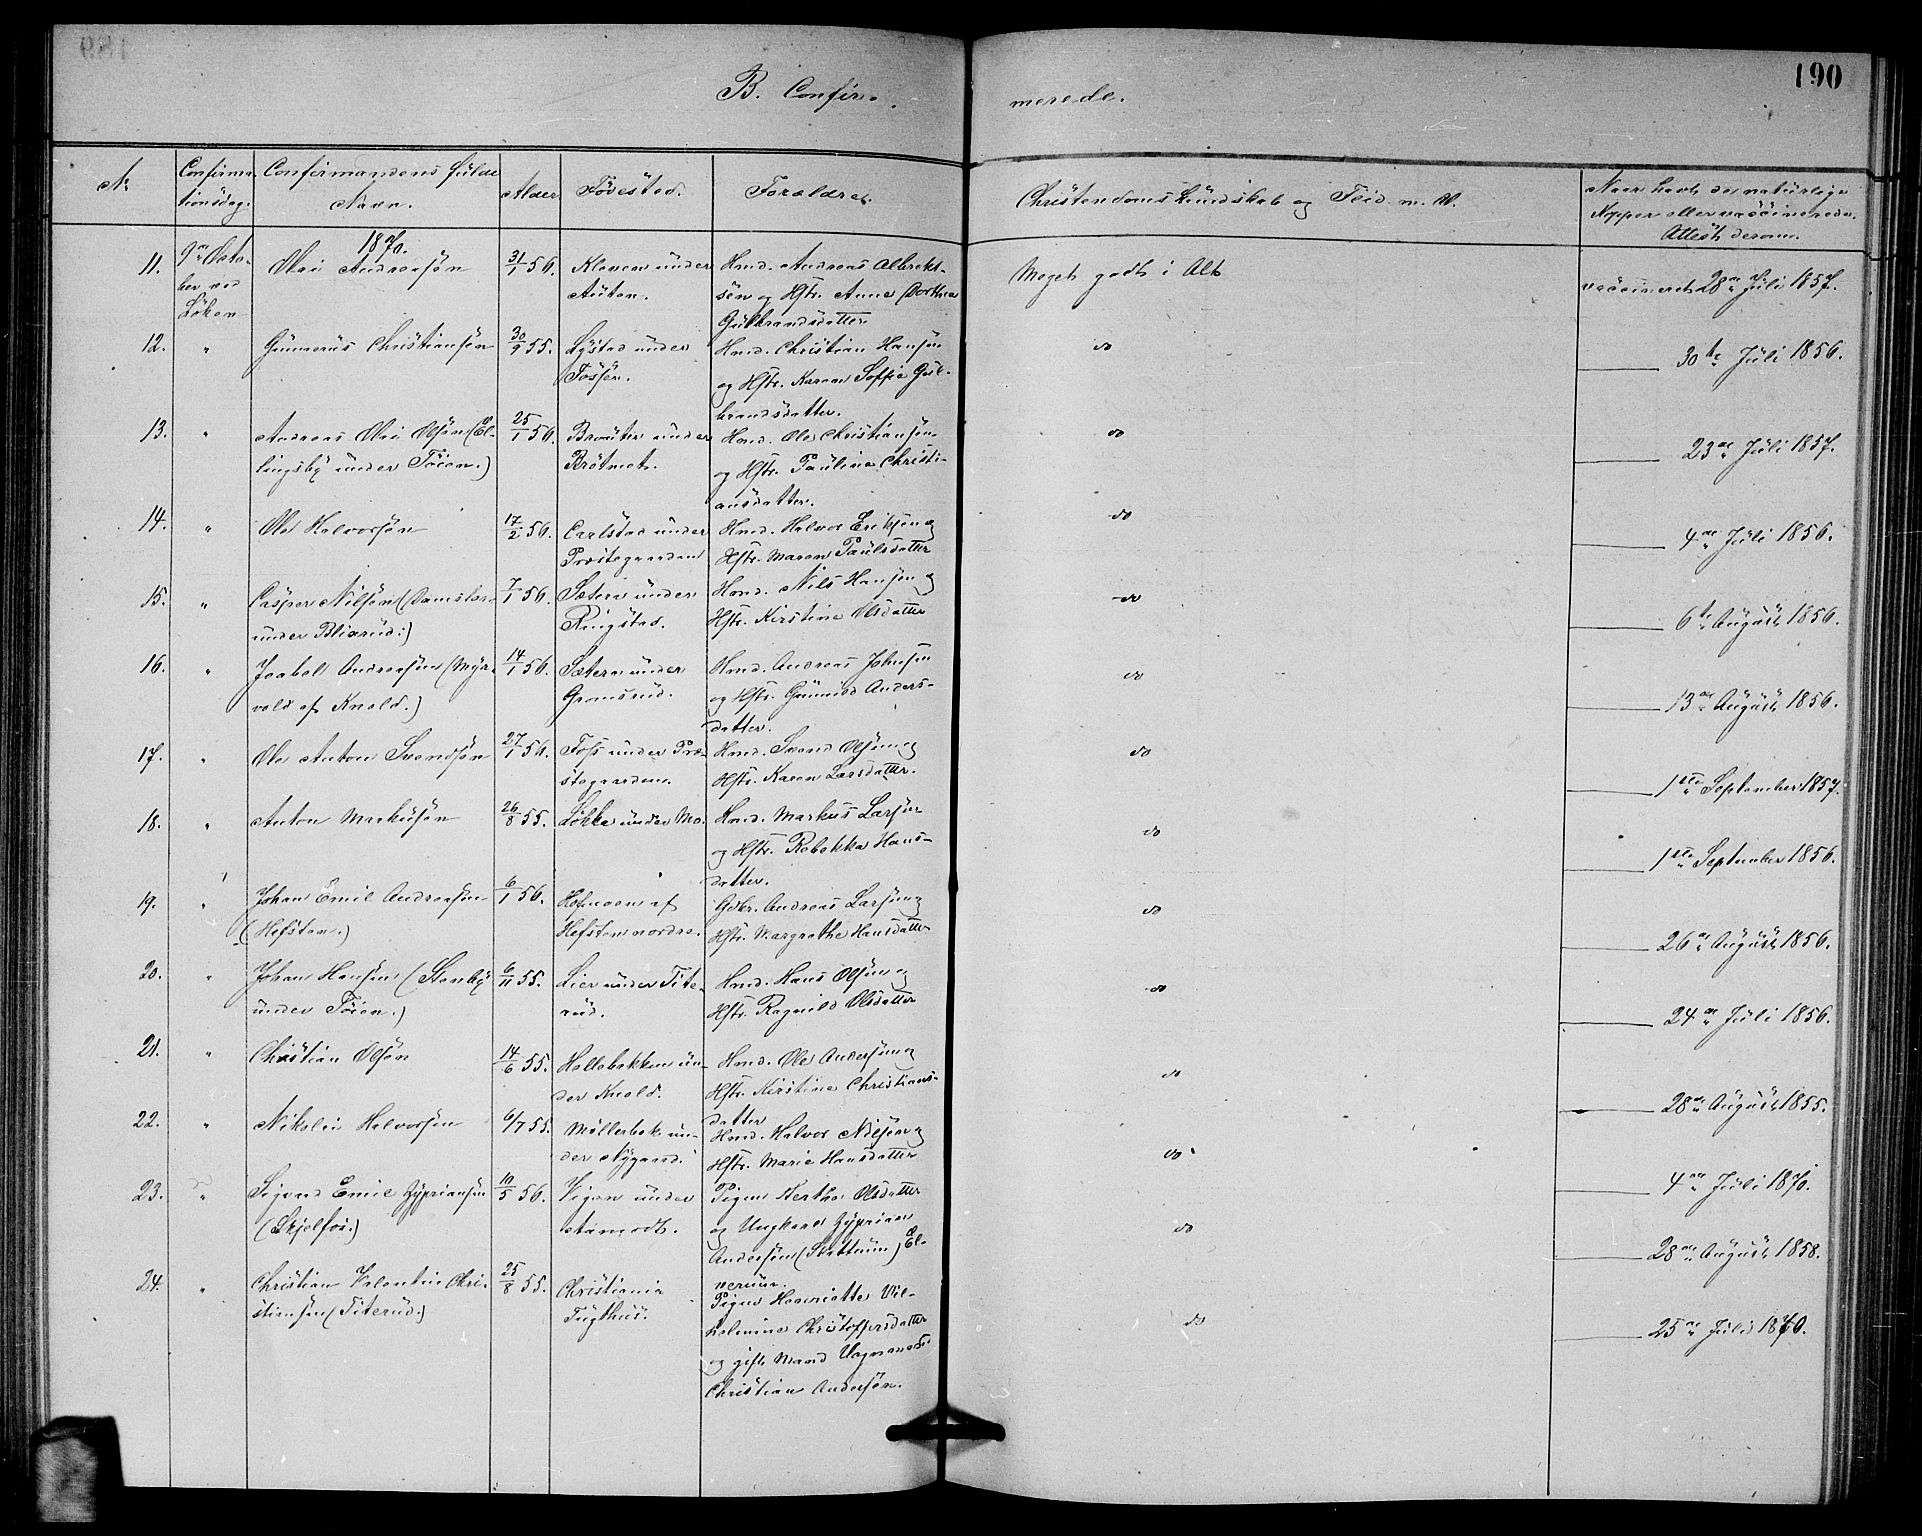 190
B. Confir-
merede.
No
Confirma-
tionsdag.
Confirmandens fulde
Navn.
Alder
Fødested.
Forældre.
Christendomskundskab og Flid m. V.
Naar havt de naturlige
Kopper eller vaccinerede.
Attest derom.
1870.
11.
9de Octo-
ber ved
Løken
Andreasøn
31/1 56.
Kleven under
Auten.
Hmd. Andreas Albrekt-
søn og Hstr. Anne Dorthea
Gulbrandsdatter
Meget godt i Alt
vaccineret 28de Juli 1857.
12.
"
Gunerius Christiansøn
30/9 55.
Lystad under
Fosser.
Hmd. Christian Hansøn
og Hstr. Karen Soffie Gul-
brandsdatter.
do
30te Juli 1856.
13.
"
Andreas Olai Olsøn (El-
lingsby under Tøien.)
25/1 56.
Braaten under
Brøtmet.
Hmd. Ole Christiansøn
og Hstr. Pauline Christi-
ansdatter.
do
23de Juli 1857.
14.
"
Ole Halvorsøn
17/2 56.
Carlstad under
Præstegaarden
Hmd. Halvor Eriksøn og
Hstr. Maren Paulsdatter
do
4de Juli 1856.
15.
"
Casper Nilsøn (Damsløra
under Blixrud:)
7/1 56.
Sætern under
Ringstad.
Hmd. Nils Hansøn og
Hstr. Kirstine Olsdatter
do
6te August 1856.
16.
"
Andreasøn (Myr-
vold af Knold.)
14/1 56.
Sætern under
Gromsrud.
Hmd. Andreas Johnsen
og Hstr. Gunild Anders-
datter.
do
13de August 1856.
17.
"
Ole Anton Svendsøn
27/1 56.
Foss under Præ-
stegaarden.
Hmd. Svend Olsøn og
Hstr. Karen Larsdatter.
do
1ste September 1857.
18.
"
Anton Markusøn
26/8 55.
Løkka under Mo.
Hmd. Markus Larsøn
og Hstr. Rebekka Hans-
datter.
do
1ste September 1856.
19.
"
Johan Emil Andreasøn
(Hofsten.)
6/1 56.
Hofmoen af
Hofsten nordre.
Gdbr. Andreas Larsøn og
Hstr. Margrethe Hansdatter
do
26de August 1856.
20.
"
Johan Hansøn (Stenby
under Tøien.)
6/11 55.
Lier under Tite-
rud.
Hmd. Hans Olsøn og
Hstr. Ragnild Olsdatter
do
24de Juli 1856.
21.
"
Christian Olsøn
14/6 55.
Hallebakken un-
der Knold.
Hmd. Ole Andersøn og
Hstr. Kirstine Christians-
datter
do
28de August 1855.
22.
"
Nikolai Halvorsøn
6/7 55.
Møllerbak un-
der Nygaard.
Hmd. Halvor Nilsøn og
Hstr. Marie Hansdatter
do
4de Juli 1870.
23.
"
Sigvard Emil Zypriansøn
(Skjelfos.)
10/5 56.
Vigen under
Aamodt.
Pigen Berthe Olsdatter
og Ungkarl Zyprian
Andersøn (Slattum) El-
verum.
do
28de August 1858.
24.
"
Christian Valentin Chri-
stiansøn (Titerud.)
25/8 55.
Christiania
Tugthus.
Pigen Henriette Vil-
helmine Christoffersdatter
og gift Mand Vognmand
Christian Andersøn.
do
25de Juli 1870.